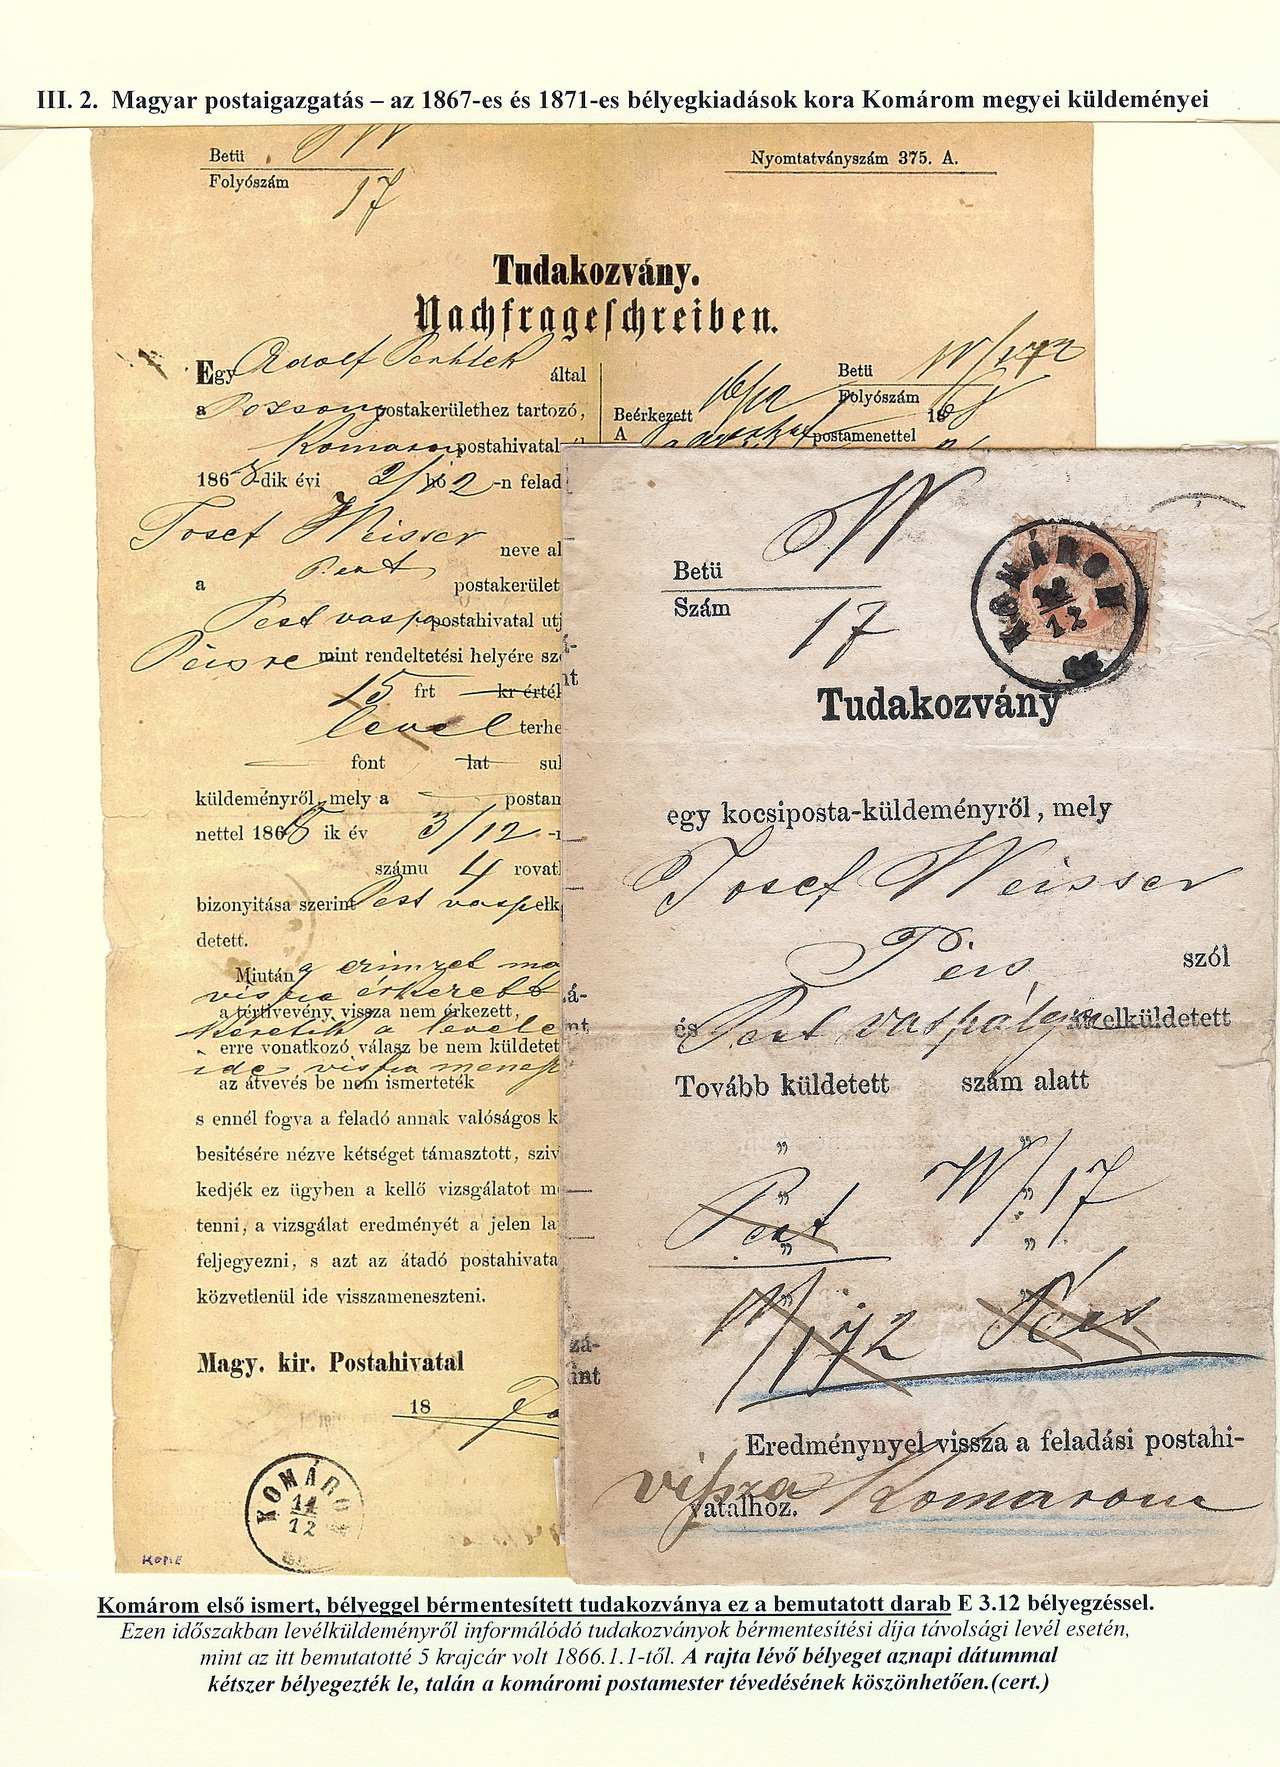 III. 2. Magyar postaigazgatás – az 1867-es és 1871-es bélyegkiadások kora Komárom megyei küldeményei
Betü W
Folyószám 17
Nyomtatványszám 375. A.
Tudakozvány.
Nachfrageschreiben.
Egy Adolf által
a Pozsony postakerülethez tartozó,
Komarom postahivatal
1868-dik évi 2/12 hó -n felad
Josef Weisser neve al
a Pest postakerület
Pest vasp postahivatal utj
Pécsre mint rendeltetési helyére sz
15 frt kr érték
level terhe
font lat sul
küldeményről, mely a postam
nettel 1868 ik év 3/12 -n
számu 4 rovatl
bizonyitása szerint Pest vasp elk
detett.
Miután a czimzet
vissza érkezett
a tértivevény vissza nem érkezett,
kéretik a level
erre vonatkozó válasz be nem küldetet
ide vissza menesz
az átvevés be nem ismerteték
s ennél fogva a feladó annak valóságos k
besitésére nézve kétséget támasztott, sziv
kedjék ez ügyben a kellő vizsgálatot m
tenni, a vizsgálat eredményét a jelen la
feljegyezni, s azt az átadó postahivata
közvetlenül ide visszameneszteni.
Magy. kir. Postahivatal
18
KOMÁROM
14
12
KOPIE
Betü W/172
Folyószám
Beérkezett 16/12 18
A postamenettel
W
Betü
Szám
17
KOMÁROM
12
Tudakozvány
egy kocsiposta-küldeményről, mely
Josef Weisser
Pécs szól
és Pest vaspálya elküldetett
Tovább küldetett szám alatt
Pest W/17
W/172 Pécs
Eredménynyel vissza a feladási postahi-
vissza Komarom
vatalhoz.
Komárom első ismert, bélyeggel bérmentesített tudakozványa ez a bemutatott darab E 3.12 bélyegzéssel.
Ezen időszakban levélküldeményről informálódó tudakozványok bérmentesítési díja távolsági levél esetén,
mint az itt bemutatotté 5 krajcár volt 1866.1.1-től. A rajta lévő bélyeget aznapi dátummal
kétszer bélyegezték le, talán a komáromi postamester tévedésének köszönhetően.(cert.)